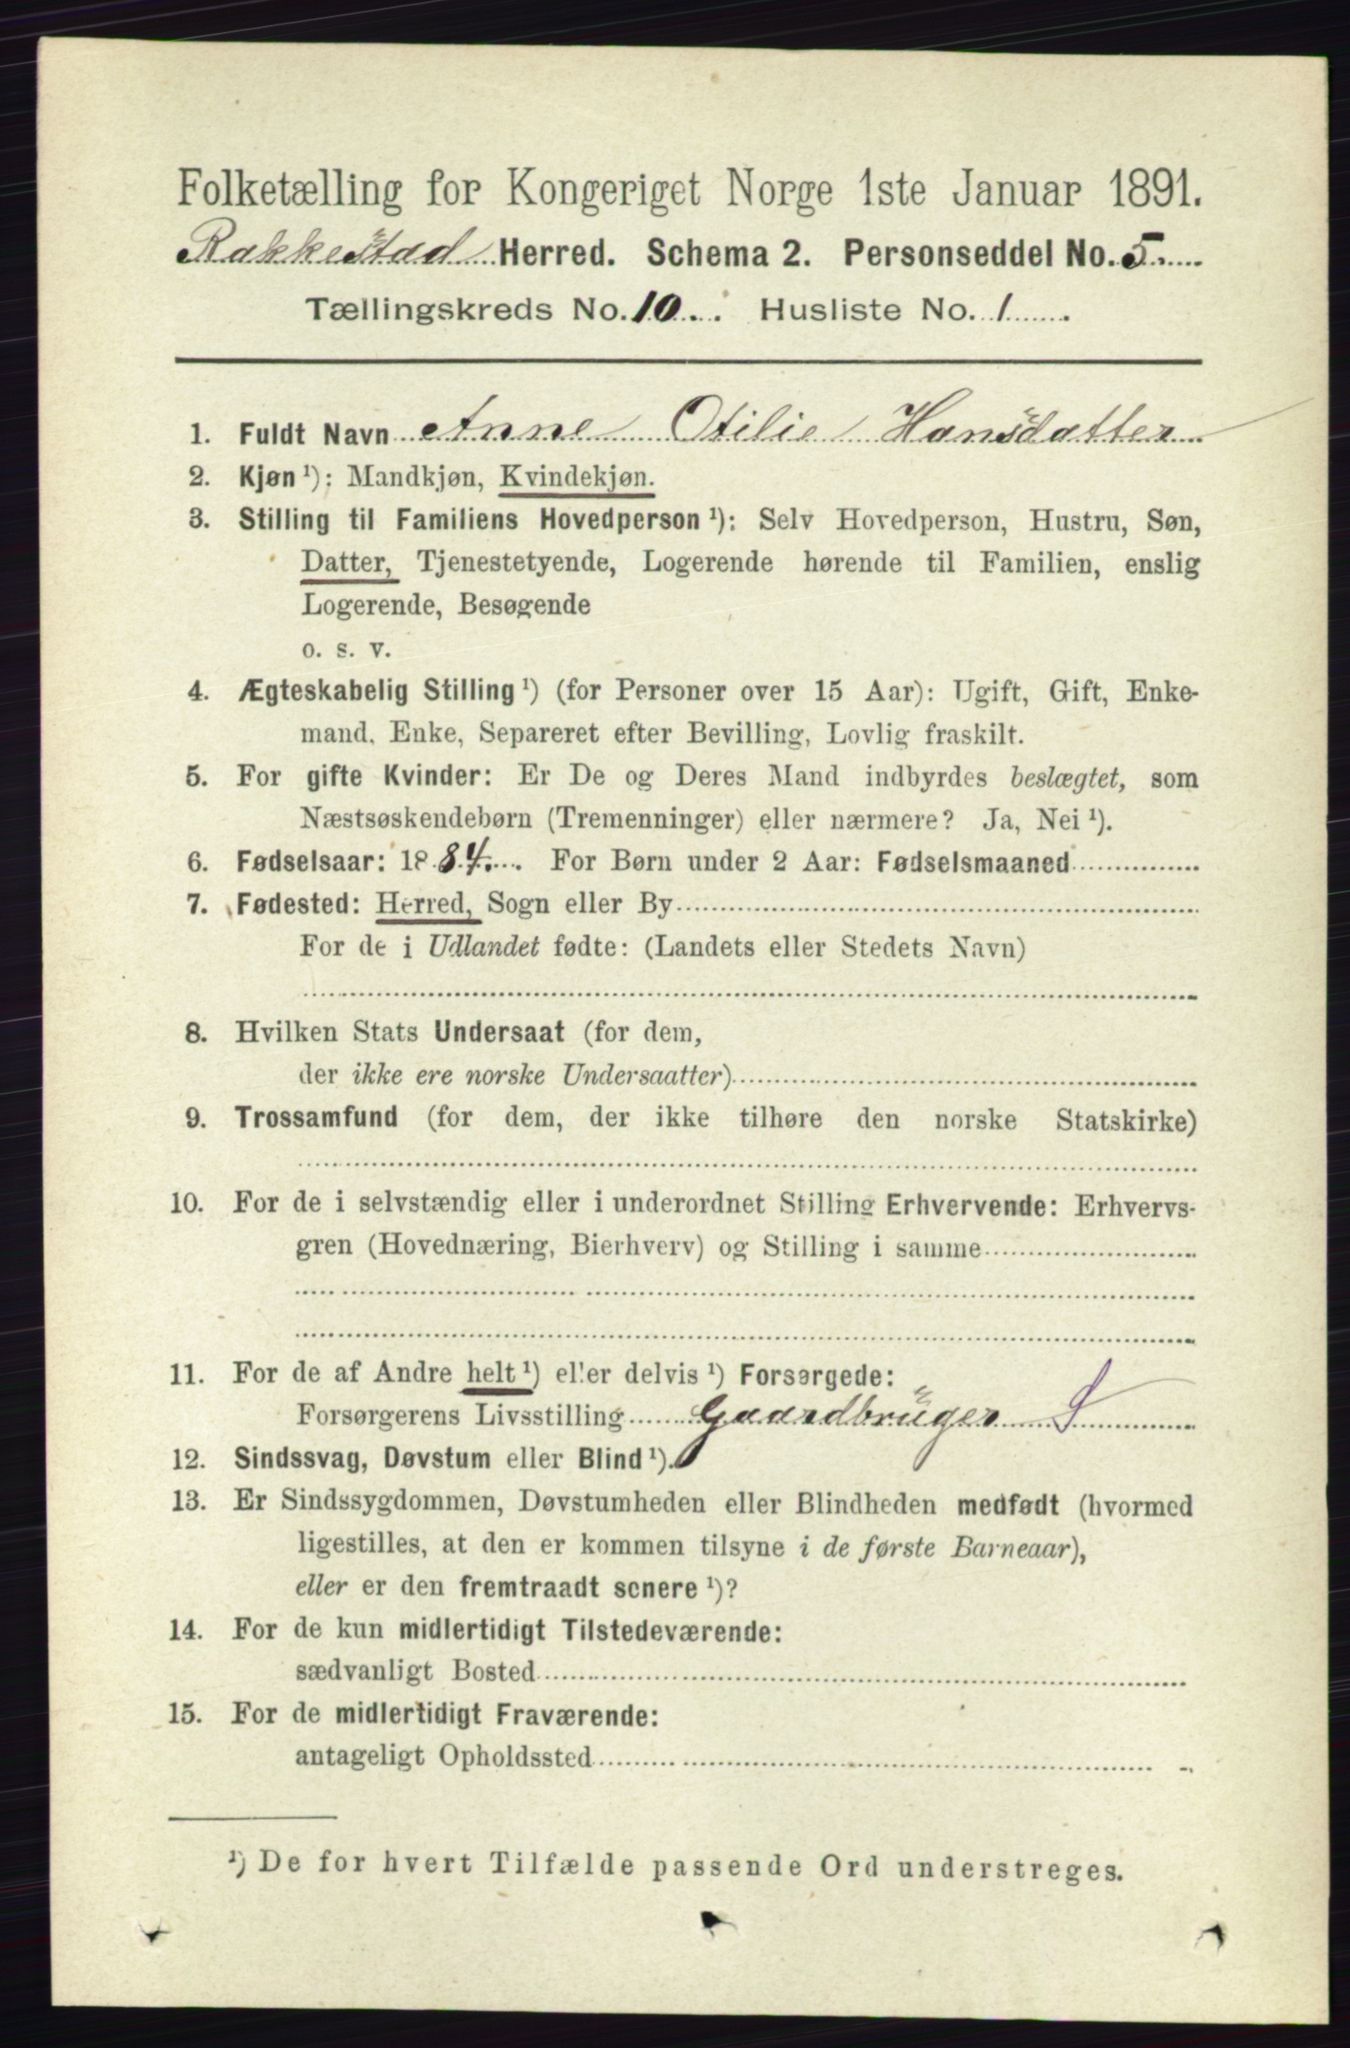 Folketælling for Kongeriget Norge 1ste Januar 1891.
Rakkestad Herred. Schema 2. Personseddel No. 5.
Tællingskreds No. 10. Husliste No. 1
1. Fuldt Navn Anne Otilie Hansdatter
2. Kjøn ¹): Mandkjøn, Kvindekjøn.
3. Stilling til Familiens Hovedperson ¹): Selv Hovedperson, Hustru, Søn,
Datter, Tjenestetyende, Logerende hørende til Familien, enslig
Logerende, Besøgende
o. s. v.
4. Ægteskabelig Stilling ¹) (for Personer over 15 Aar): Ugift, Gift, Enke-
mand, Enke, Separeret efter Bevilling, Lovlig fraskilt.
5. For gifte Kvinder: Er De og Deres Mand indbyrdes beslægtet, som
Næstsøskendebørn (Tremenninger) eller nærmere? Ja, Nei ¹).
6. Fødselsaar: 1884. For Børn under 2 Aar: Fødselsmaaned
7. Fødested: Herred, Sogn eller By
For de i Udlandet fødte: (Landets eller Stedets Navn)
8. Hvilken Stats Undersaat (for dem,
der ikke ere norske Undersaatter)
9. Trossamfund (for dem, der ikke tilhøre den norske Statskirke)
10. For de i selvstændig eller i underordnet Stilling Erhvervende: Erhvervs-
gren (Hovednæring, Bierhverv) og Stilling i samme
11. For de af Andre helt ¹) eller delvis ¹) Forsørgede:
Forsørgerens Livsstilling Gaardbrüger S
12. Sindssvag, Døvstum eller Blind ¹).
13. Er Sindssygdommen, Døvstumheden eller Blindheden medfødt (hvormed
ligestilles, at den er kommen tilsyne i de første Barneaar),
eller er den fremtraadt senere ¹)?
14. For de kun midlertidigt Tilstedeværende:
sædvanligt Bosted
15. For de midlertidigt Fraværende:
antageligt Opholdssted
¹) De for hvert Tilfælde passende Ord understreges.